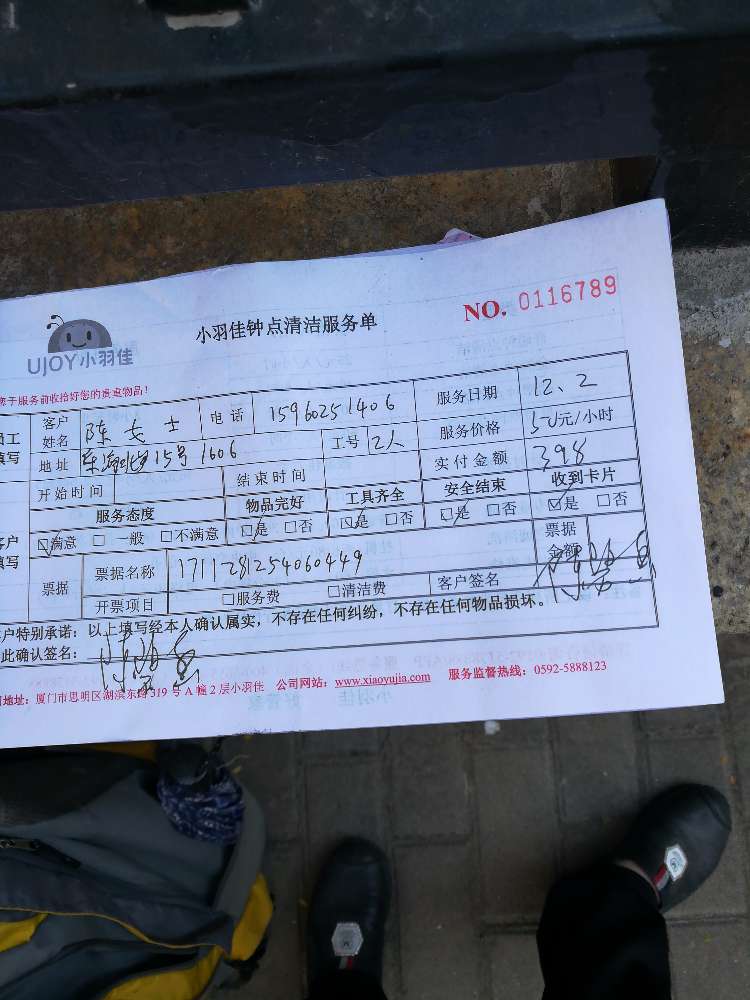 UJOY小羽佳
小羽佳钟点清洁服务单
NO. 0116789
您于服务前收拾好您的贵重物品！
员工填写
客户姓名 陈女士 电话 15960251406 服务日期 12、2
地址 15号1606 工号 2人 服务价格 50元/小时
开始时间 结束时间 实付金额 398
服务态度 物品完好 工具齐全 安全结束 收到卡片
客户填写
☑满意 □一般 □不满意 ☑是 □否 ☑是 □否 ☑是 □否 ☑是 □否
票据 票据名称 1711-281254060449 票据金额
开票项目 □服务费 □清洁费 客户签名
客户特别承诺：以上填写经本人确认属实，不存在任何纠纷，不存在任何物品损坏。
此确认签名：
地址：厦门市思明区湖滨东路319号A幢2层小羽佳 公司网站：www.xiaoyujia.com 服务监督热线：0592-5888123